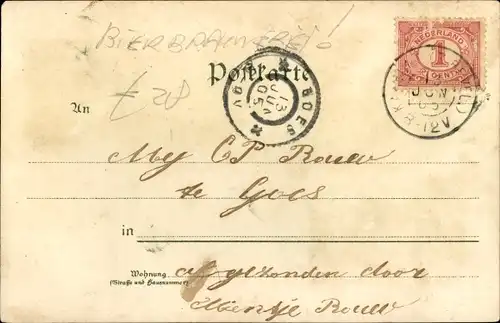 BIERBRAUWEREI!
NEDERLAND
1
CENT
Postkarte
GOES
13
JUN
05
8-12V
An
£ 28
Mej CP Rouw
te Goes
in
Wohnung
(Straße und Hausnummer)
afgezonden door
Mientje Rouw